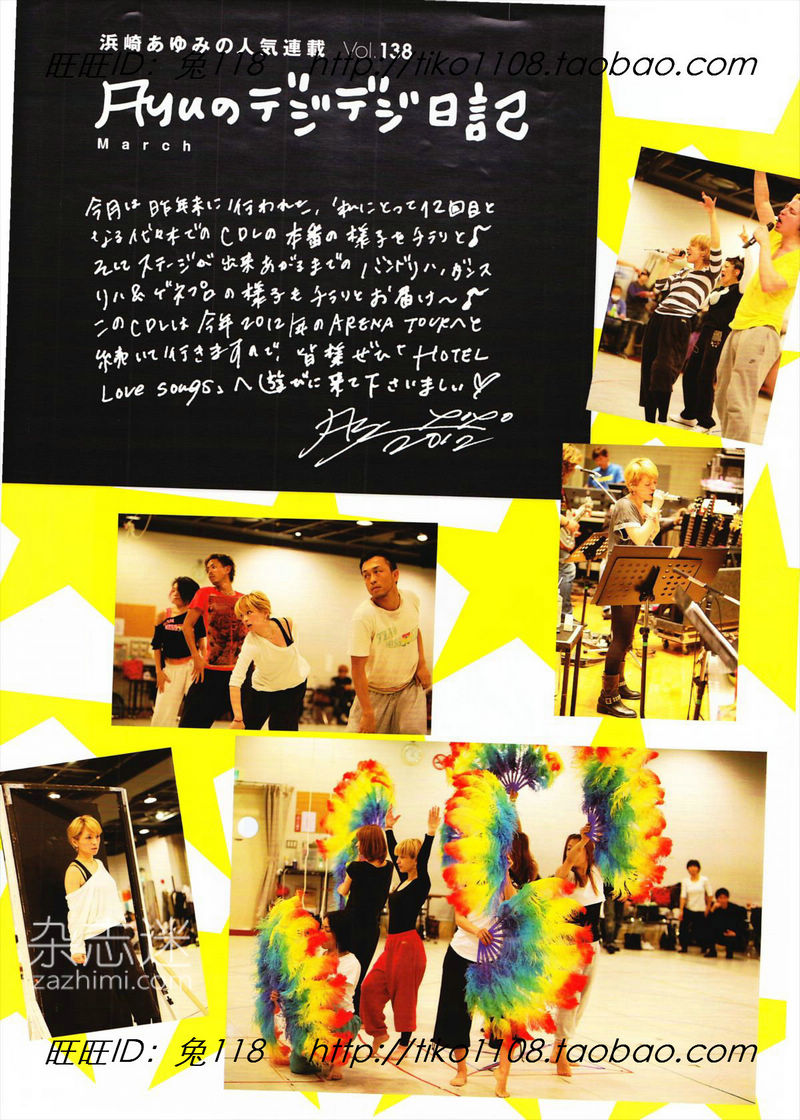 浜崎あゆみの人気連載 Vol.138
旺旺ID：兔118 http://tiko1108.taobao.com
Ayuのデジデジ日記
March
今月は昨年末に行われた、私にとって12回目と
なる代々木でのCDLの本番の様子をチラリと♪
そしてステージが出来あがるまでのバンドリハ、ダンス
リハ&ゲネプロの様子もチラリとお届け〜♪
このCDLは今年2012年のARENA TOURへと
続いて行きますので、皆様ぜひ「HOTEL
Love songs」へ遊びに来て下さいましい♡
2012
杂志迷
zazhimi.com
旺旺ID：兔118 http://tiko1108.taobao.com